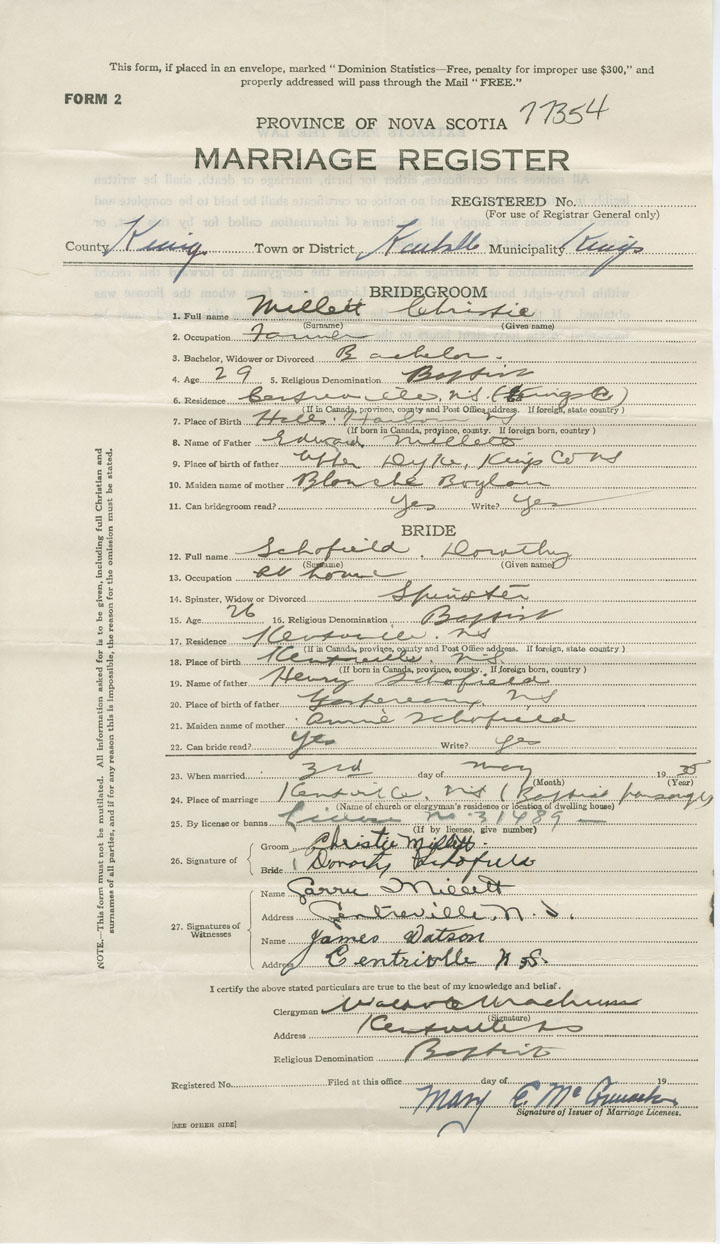 This form, if placed in an envelope, marked "Dominion Statistics—Free, penalty for improper use $300," and
properly addressed will pass through the Mail "FREE."
FORM 2
PROVINCE OF NOVA SCOTIA 77354
MARRIAGE REGISTER
REGISTERED No.
(For use of Registrar General only)
County Kings Town or District Kentville Municipality Kings
BRIDEGROOM
1. Full name Millett Christie
(Surname) (Given name)
2. Occupation Farmer
3. Bachelor, Widower or Divorced Bachelor.
4. Age 29 5. Religious Denomination Baptist
6. Residence Centreville, N.S. (Kings Co)
(If in Canada, province, county and Post Office address. If foreign, state country)
7. Place of Birth Halls Harbor NS
(If born in Canada, province, county. If foreign born, country)
8. Name of Father Edward Millett
9. Place of birth of father Upper Dyke, Kings Co NS
10. Maiden name of mother Blanche Boylan
11. Can bridegroom read? Yes Write? Yes
BRIDE
12. Full name Schofield, Dorothy
(Surname) (Given name)
13. Occupation at home
14. Spinster, Widow or Divorced Spinster
15. Age 26 16. Religious Denomination Baptist
17. Residence Kentville, NS
(If in Canada, province, county and Post Office address. If foreign, state country)
18. Place of birth Kentville, N.S.
(If born in Canada, province, county. If foreign born, country)
19. Name of father Henry Schofield
20. Place of birth of father NS
21. Maiden name of mother Annie Schofield
22. Can bride read? Yes Write? Yes
23. When married 3rd day of May 1935
(Month) (Year)
24. Place of marriage Kentville, NS (Baptist parsonage
(Name of church or clergyman's residence or location of dwelling house)
25. By license or banns License no 31489 —
(If by license, give number)
26. Signature of
Groom Christie Millett
Bride Dorothy Schofield
27. Signatures of Witnesses
Name Millett
Address Centreville, N.S.
Name James Watson
Address Centriville N.S.
I certify the above stated particulars are true to the best of my knowledge and belief.
Clergyman
(Signature)
Address Kentville NS
Religious Denomination Baptist
Registered No. Filed at this office day of 19
Mary E. Mc
Signature of Issuer of Marriage Licenses.
[SEE OTHER SIDE]
NOTE.—This form must not be mutilated. All information asked for is to be given, including full Christian and
surnames of all parties, and if for any reason this is impossible, the reason for the omission must be stated.